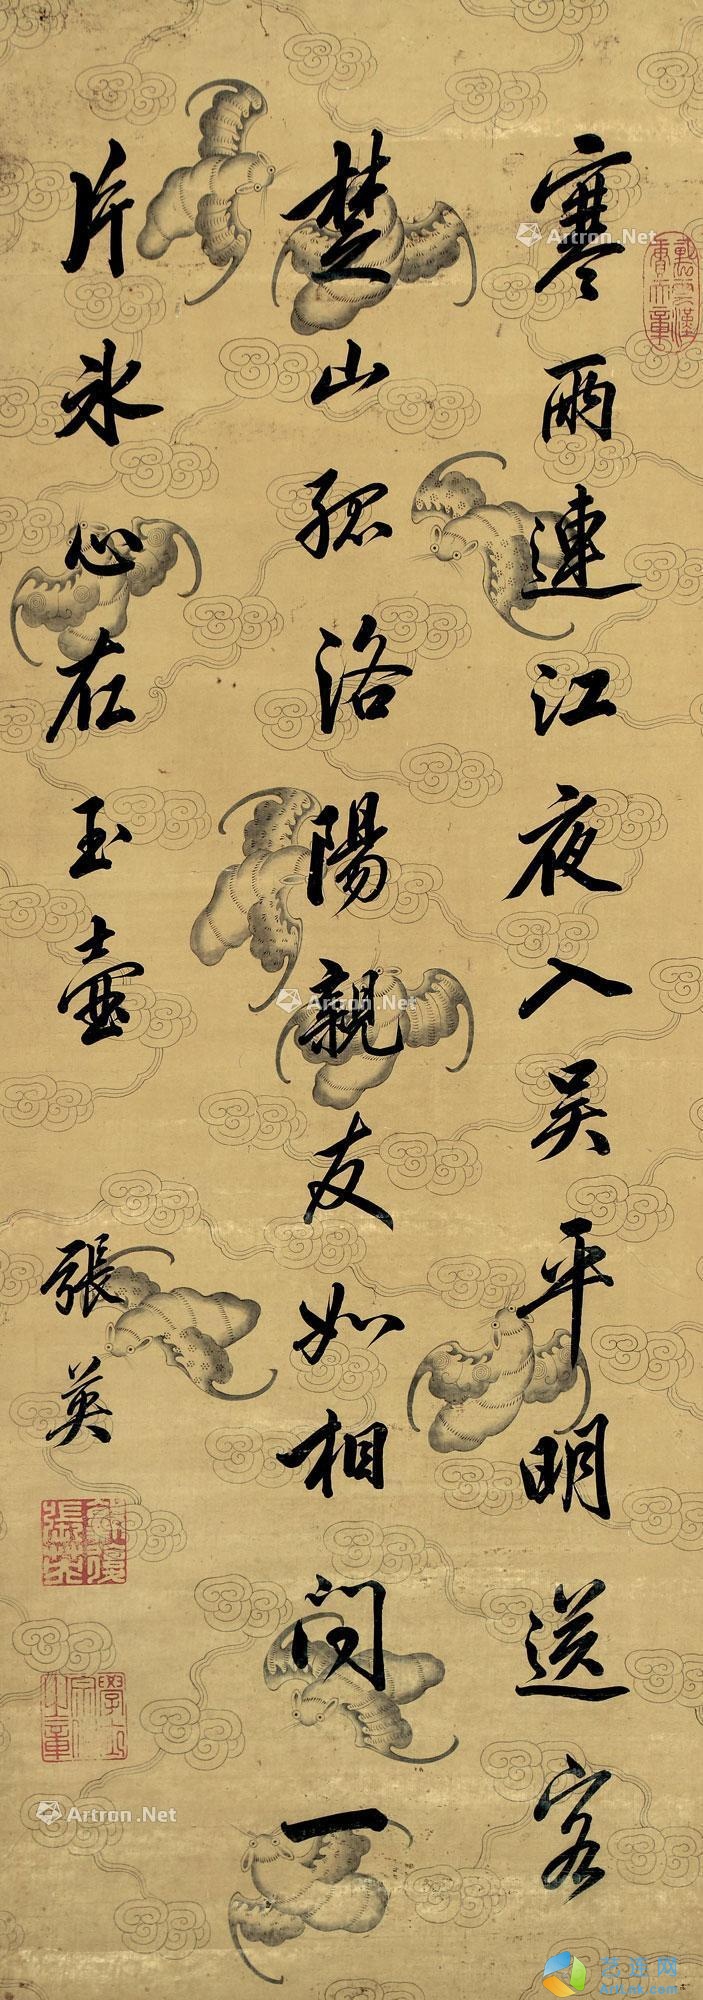 寒雨連江夜入吴平明送客
楚山孤洛陽親友如相问一
片氷心在玉壺
張英
Artron.Net
Artron.Net
Artron.Net
艺狐网